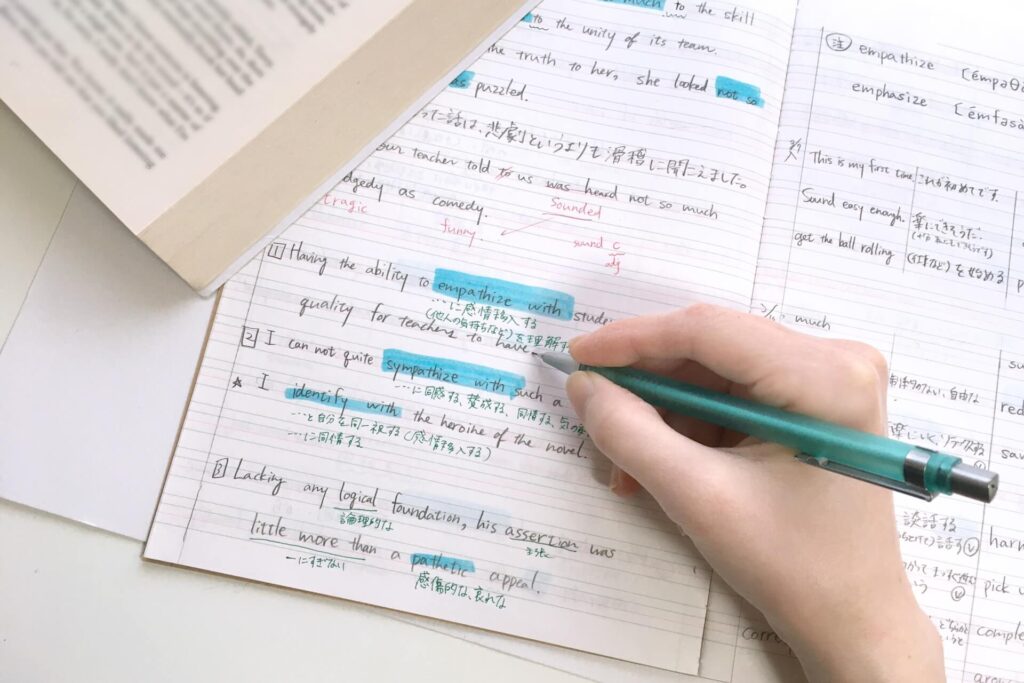 much to the skill
to the unity of its team.
the truth to her, she looked not so
as puzzled.
った話は、悲劇というよりも滑稽に聞こえました。
our teacher told to us was heard not so much
dgedly as comedy.
tragic
Sounded
funny
sound C
adj
1 Having the ability to empathize with stude
…に感情移入する
(他人の気持ちなど)を理解す
quality for teachers to have
2 I can not quite sympathize with such a
…に同感する、賛成する、同情する、気の
★ I identify with the heroine of the novel.
…と自分を同一視する(感情移入する)
…に同情する
3 Lacking any logical foundation, his assertion was
論理的な
主張
little more than a pathetic appeal.
―にすぎない
感傷的な、哀れな
注 empathize [émpəθà
emphasize [émfəsà
This is my first time. これが初めてです。
Sound easy enough.
get the ball rolling (仕事など)を始める
much
su
red
sav
談話する
harm
pick u
comple
corre
arou